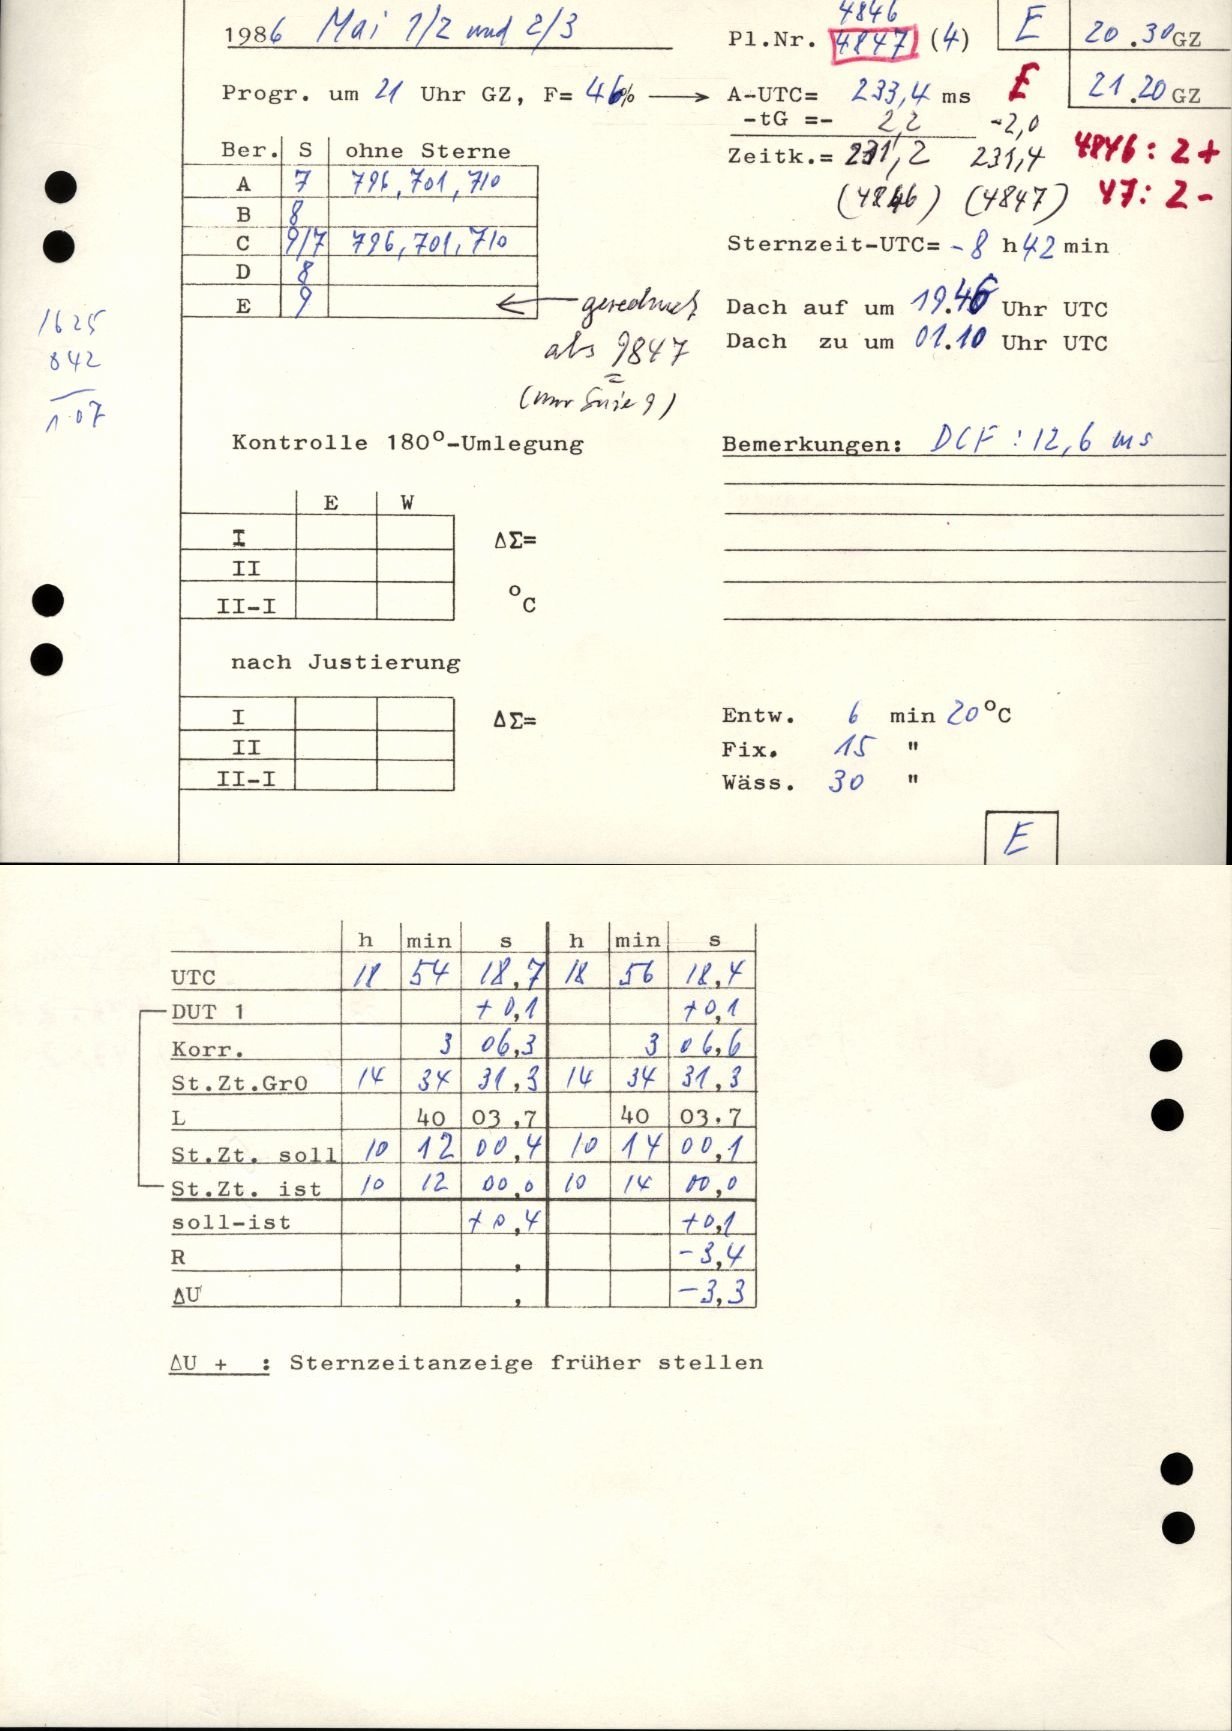 1986 Mai 1/2 und 2/3
4846
Pl.Nr. 4847 (4) E 20.30 GZ
Progr. um 21 Uhr GZ, F= 46% → A-UTC= 233,4 ms E 21.20 GZ
-tG =- 2,2 -2,0
Zeitk.= 231,2 231,4 4846: 2+
(4846) (4847) 47: 2-
Ber. S ohne Sterne
A 7 796, 701, 710
B 8
C 9/7 796, 701, 710
D 8
E 9 ← gerechnet
als 9847
(nur Serie 9)
Sternzeit-UTC= -8 h 42 min
Dach auf um 19.46 Uhr UTC
Dach zu um 01.10 Uhr UTC
1625
842
1 07
Kontrolle 180°-Umlegung
E W
I ΔΣ=
II
II-I °C
nach Justierung
I ΔΣ=
II
II-I
Bemerkungen: DCF: 12,6 ms
Entw. 6 min 20°C
Fix. 15 "
Wäss. 30 "
E
h min s h min s
UTC 18 54 18,7 18 56 18,4
DUT 1 +0,1 +0,1
Korr. 3 06,3 3 06,6
St.Zt.Gr0 14 34 31,3 14 34 31,3
L 40 03,7 40 03,7
St.Zt. soll 10 12 00,4 10 14 00,1
St.Zt. ist 10 12 00,0 10 14 00,0
soll-ist +0,4 +0,1
R , -3,4
ΔU , -3,3
ΔU + : Sternzeitanzeige früher stellen